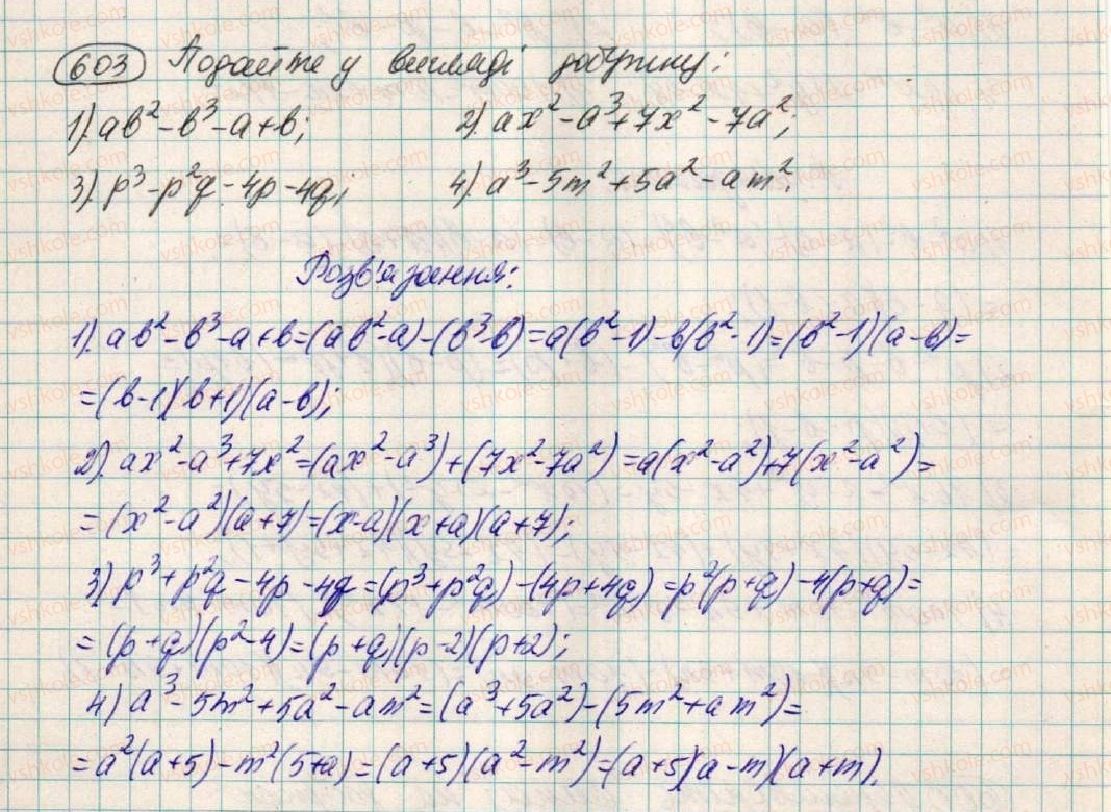 603 Подайте у вигляді добутку:
1). ab² - b³ - a + b;   2). ax² - a³ + 7x² - 7a²;
3). p³ - p²q - 4p - 4q;   4). a³ - 5m² + 5a² - am².
Розв'язання:
1). ab² - b³ - a + b = (ab² - a) - (b³ - b) = a(b² - 1) - b(b² - 1) = (b² - 1)(a - b) =
= (b - 1)(b + 1)(a - b);
2). ax² - a³ + 7x² = (ax² - a³) + (7x² - 7a²) = a(x² - a²) + 7(x² - a²) =
= (x² - a²)(a + 7) = (x - a)(x + a)(a + 7);
3) p³ + p²q - 4p - 4q = (p³ + p²q) - (4p + 4q) = p²(p + q) - 4(p + q) =
= (p + q)(p² - 4) = (p + q)(p - 2)(p + 2);
4) a³ - 5m² + 5a² - am² = (a³ + 5a²) - (5m² + am²) =
= a²(a + 5) - m²(5 + a) = (a + 5)(a² - m²) = (a + 5)(a - m)(a + m).
vshkole.com